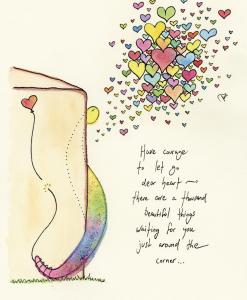 Have courage
to let go
dear heart ~
there are a thousand
beautiful things
waiting for you
just around the
corner...